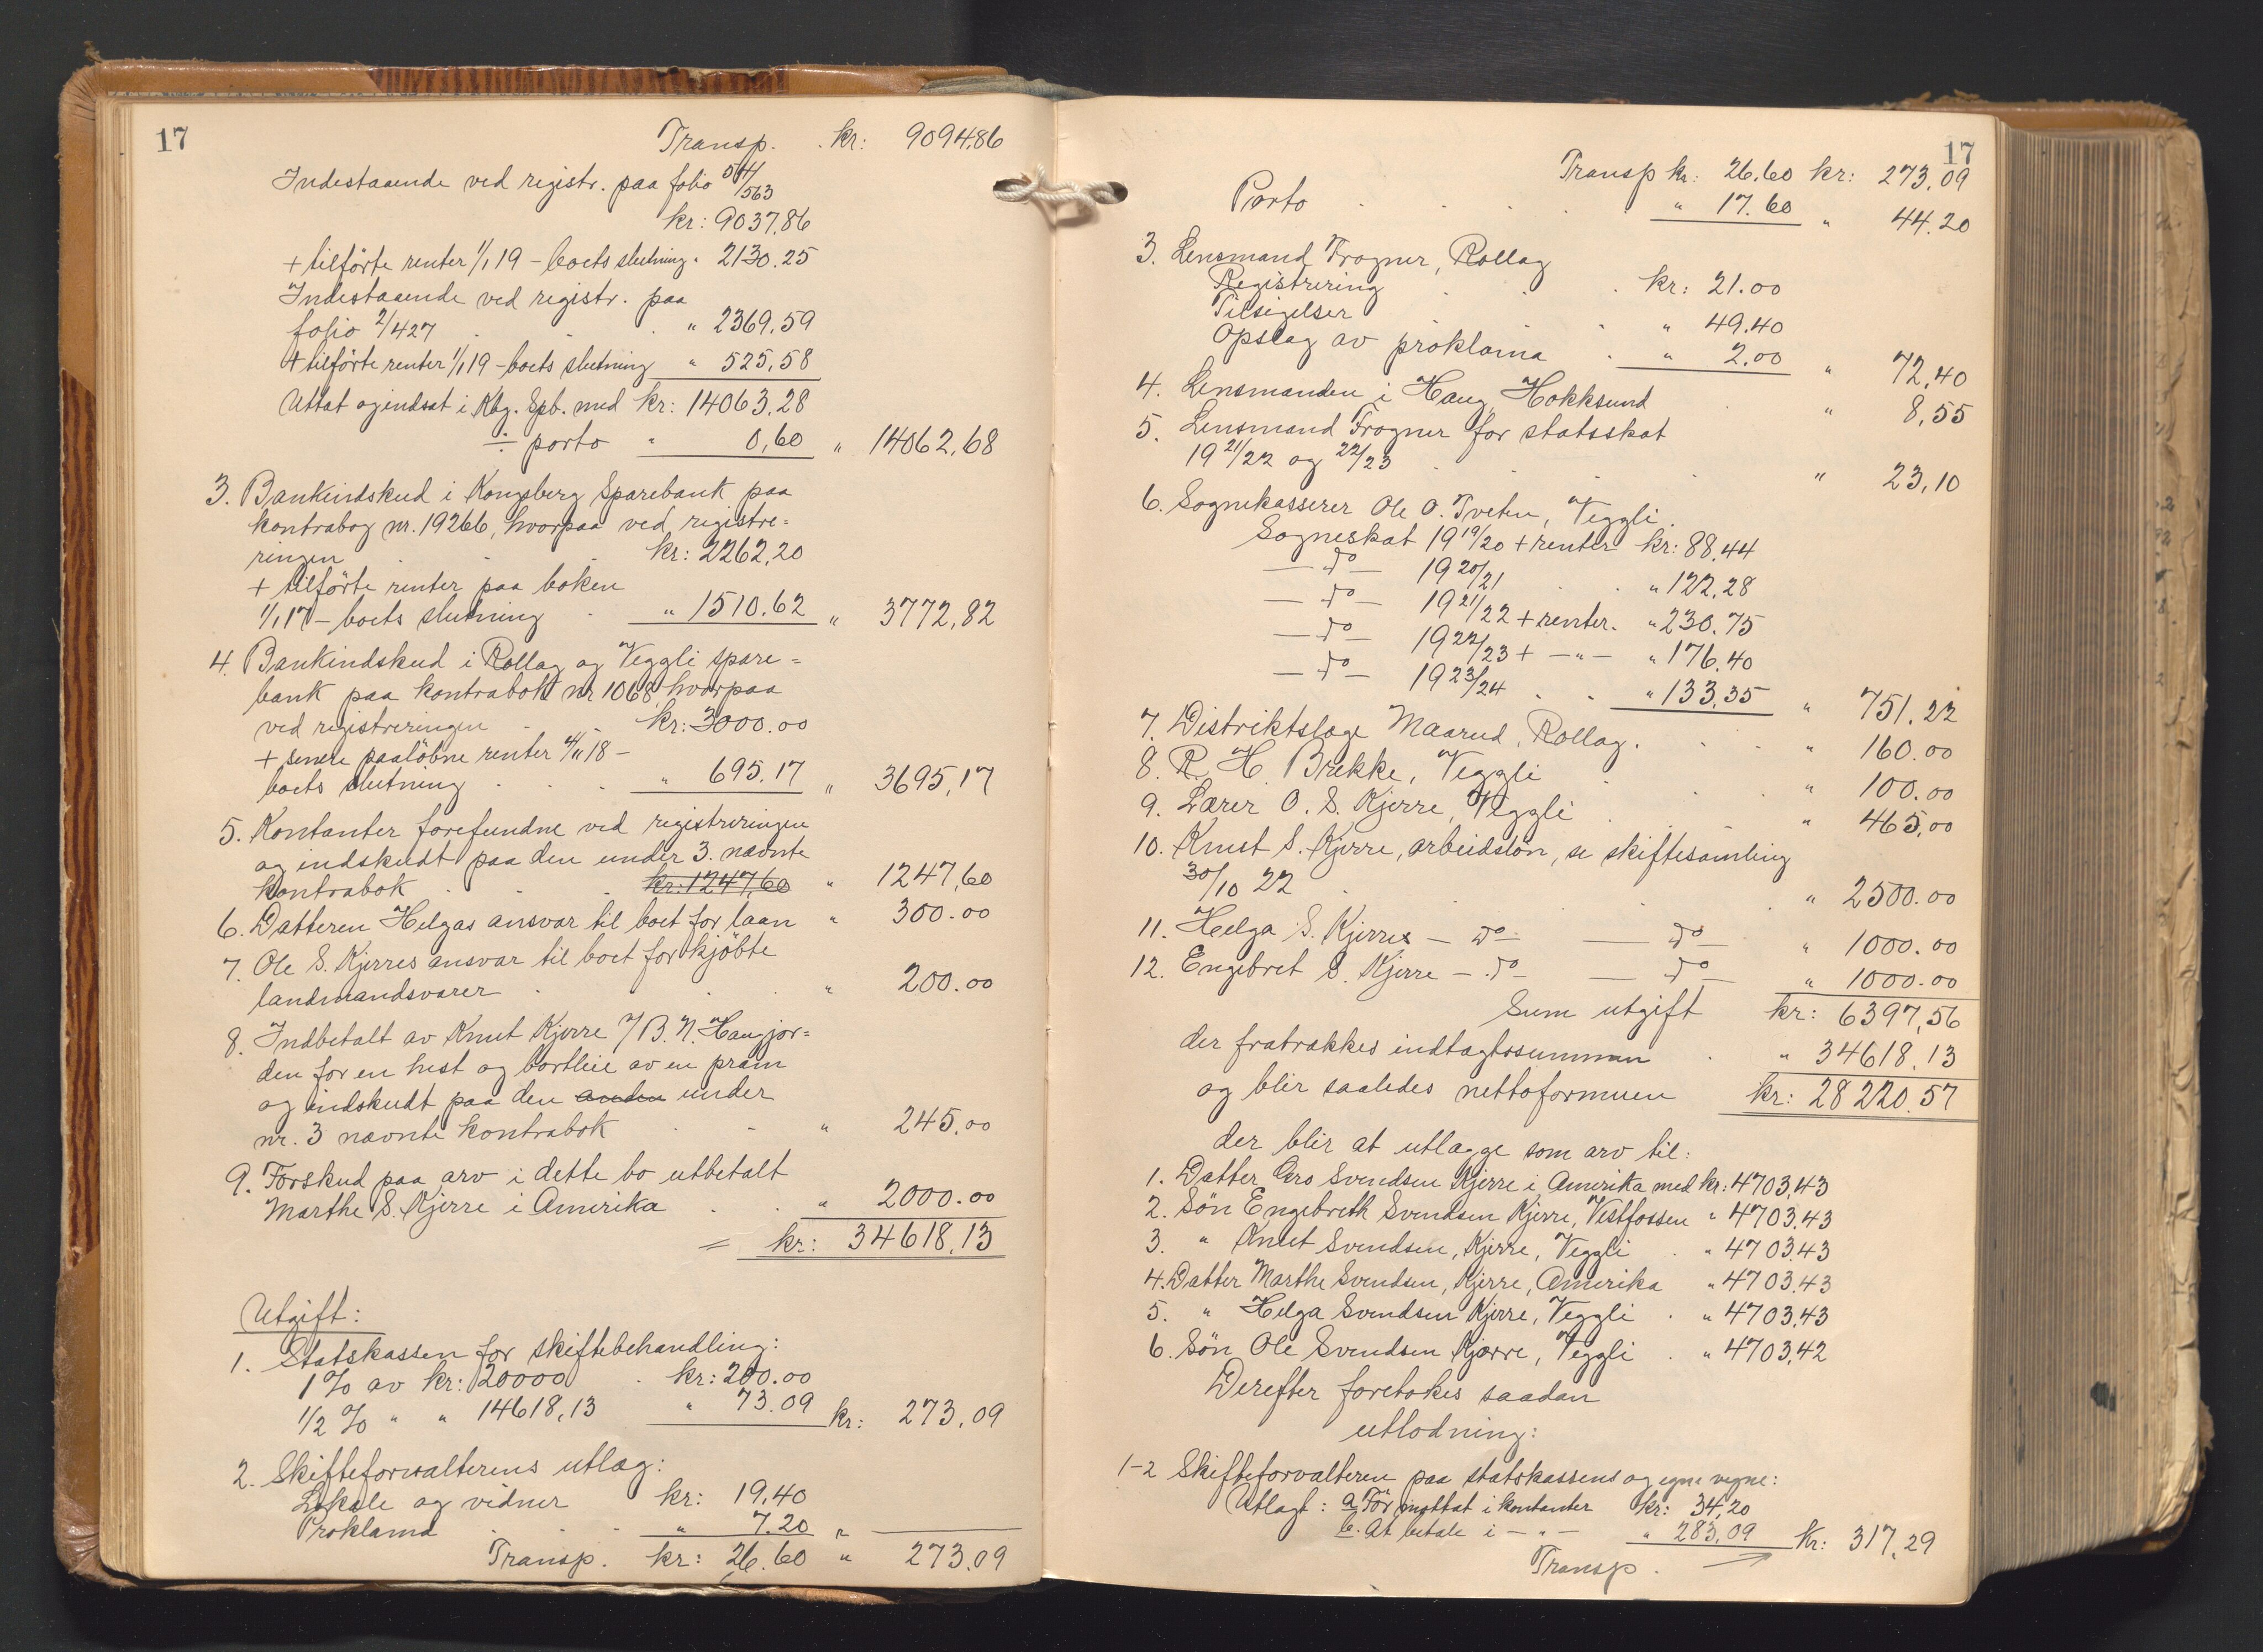 17
Transp. . kr: 9094,86
Indestaaende ved registr. paa folio 54/563
kr: 9037,86
+ tilförte renter 1/1 19 - boets slutning " 2130.25
Indestaaende ved registr. paa
folio 2/427 . . . " 2369,59
+ tilförte renter 1/1 19 - boets slutning " 525,58
Uttat og indsat i Kbg. Spb. med kr: 14063,28
÷ porto " 0,60 " 14062,68
3. Bankindskud i Kongsberg Sparebank paa
kontrabog nr. 19266, hvorpaa ved registre=
ringen . . kr: 2262,20
+ tilförte renter paa boken
1/1 17 - boets slutning . " 1510.62 " 3772,82
4. Bankindskud i Rollag og Veggli spare=
bank paa kontrabok nr 1068 hvorpaa
ved registreringen . . kr: 3000.00
+ senere paalöbne renter 4/11 18 -
boets slutning . . . " 695.17 " 3695,17
5. Kontanter forefundne ved registreringen
og indskudt paa den under 3. nævnte
kontrabok . . kr: 1247,60 " 1247,60
6. Datteren Helgas ansvar til boet for laan " 300.00
7. Ole S. Kjerres ansvar til boet for kjöbte
landmandsvarer . . . " 200.00
8. Indbetalt av Knut Kjerre 7/B. N. Haugjor=
den for en hest og bortleie av en pram
og indskudt paa den anden under
nr. 3 nævnte kontrabok . . " 245,00
9. Forskud paa arv i dette bo utbetalt
Marthe S. Kjerre i Amerika . . " 2000.00
= kr: 34618,13
Utgift:
1. Statskassen for skiftebehandling:
1 % av kr: 20000 . kr: 200.00
1/2 % " " 14618,13 " 73.09 kr: 273,09
2. Skifteforvalterens utlæg:
Lokale og vidner kr: 19,40
Proklama . . . " 7.20 "
Transp. kr: 26.60 " 273.09
17
Transp kr: 26.60 kr: 273,09
Porto . . . . " 17.60 " 44.20
3. Lensmand Frogner, Rollag
Registrering . . . kr: 21.00
Tilsigelser . . " 49.40
Opslag av proklama . " 2.00 " 72,40
4. Lensmanden i Haug, Hokksund . " 8,55
5. Lensmand Frogner for statsskat
19 21/22 og 22/23 . . . " 23,10
6. Sognekasserer Ole O. Tveten, Veggli.
Sogneskat 19 19/20 + renter kr: 88,44
— do — 19 20/21 . . " 122,28
— do — 19 21/22 + renter. " 230.75
— do — 19 22/23 + — " — " 176.40
— do — 19 23/24 . . " 133,35 " 751.22
7. Distriktslæge Maarud, Rollag. . . . " 160.00
8. R. H. Brekke, Veggli . . . " 100.00
9. Lærer O. S. Kjerre, Veggli . . . " 465,00
10. Knut S. Kjerre, arbeidslön, se skiftesamling
30/10 22 . . . . " 2500.00
11. Helga S. Kjerres — do — — do — " 1000.00
12. Engebret S. Kjerre — do — — do — " 1000.00
Sum utgift kr: 6397,56
der fratrækkes indtægtssummen . " 34618,13
og blir saaledes nettoformuen kr: 28220.57
der blir at utlægge som arv til:
1. Datter Gro Svendsen Kjerre i Amerika med kr: 4703,43
2. Sön Engebreth Svendsen Kjerre, Vestfossen " 4703.43
3. " Knut Svendsen, Kjerre, Veggli . " 4703.43
4. Datter Marthe Svendsen, Kjerre, Amerika " 4703.43
5. " Helga Svendsen Kjerre, Veggli . " 4703.43
6. Sön Ole Svendsen Kjærre, Veggli . " 4703,42
Derefter foretokes saadan
utlodning:
1-2 Skifteforvalteren paa statskassens og egne vegne:
Utlagt: a För mottat i kontanter kr: 34,20
b. At betale i — " — " 283,09 Kr: 317,29
Transp.